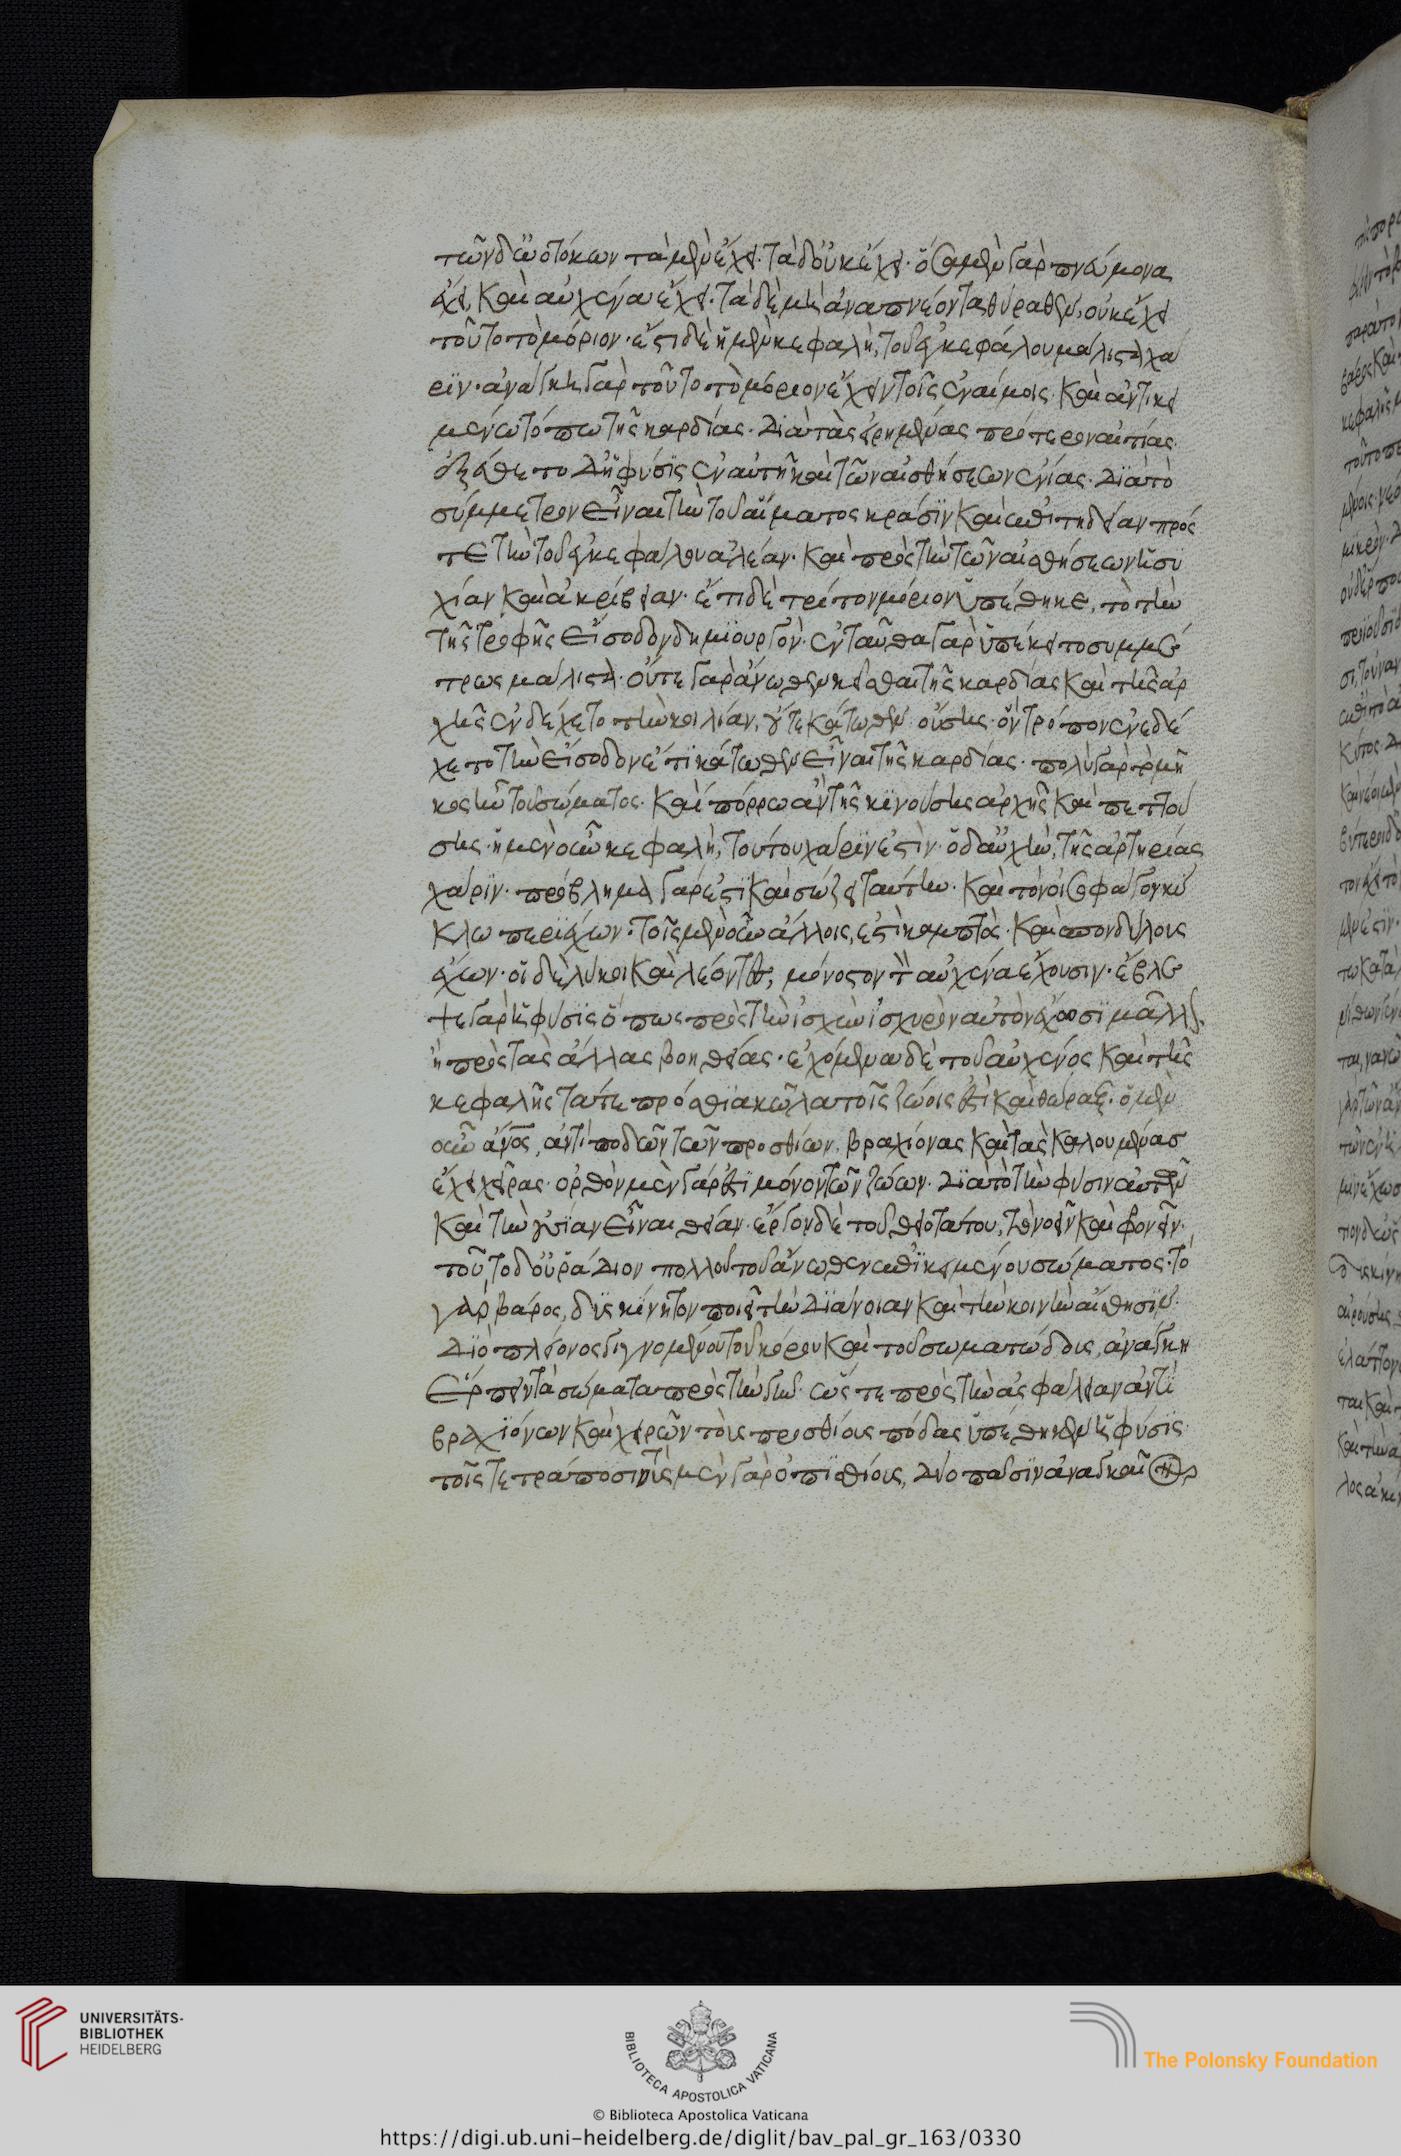 τῶν δ' ὠοτόκων τὰ μὲν ἔχει· τὰ δ' οὐκ ἔχει· ὅσα μὲν γὰρ πνεύμονα
ἔχει, καὶ αὐχένα ἔχει· τὰ δὲ μὴ ἀναπνέοντα θύραθεν, οὐκ ἔχει
τοῦτο τὸ μόριον· ἔστι δὲ ἡ μὲν κεφαλὴ, τοῦ ἐγκεφάλου μάλιστα χά
ριν· ἀνάγκη γὰρ τοῦτο τὸ μόριον ἔχειν τοῖς ἐναίμοις· καὶ ἀντικει
μένω τόπω τῆς καρδίας· διὰ τὰς εἰρημένας πρότερον αἰτίας·
ἐξέθετο δ' ἡ φύσις ἐν αὐτῆ καὶ τῶν αἰσθήσεων ἐνίας· διὰ τὸ
σύμμετρον εἶναι τὴν τοῦ αἵματος κράσιν καὶ ἐπιτηδείαν πρός
τε τὴν τοῦ ἐγκεφάλου ἀλέαν· καὶ πρὸς τὴν τῶν αἰσθήσεων ἡσυ
χίαν καὶ ἀκρίβειαν· ἔτι δὲ τρίτον μόριον ὑπέθηκε, τὸ τὴν
τῆς τροφῆς εἴσοδον δημιουργὸν· ἐνταῦθα γὰρ ὑπέκειτο συμμέ
τρως μάλιστα· οὔτε γὰρ ἄνωθεν κεῖσθαι τῆς καρδίας καὶ τῆς ἀρ
χῆς ἐνδέχετο τὴν κοιλίαν, οὔτε κάτωθεν οὔσης· ὃν τρόπον ἐνεδέ
χετο τὴν εἴσοδον ἔτι κάτωθεν εἶναι τῆς καρδίας· πολὺ γὰρ τὸ μῆ
κος ἦν τοῦ σώματος· καὶ πόρρω ἂν τῆς κινούσης ἀρχῆς καὶ πεπτού
σης· ἡ μὲν οὖν κεφαλὴ, τούτου χάριν ἐστὶν· ὁ δ' αὐχὴν, τῆς ἀρτηρίας
χάριν· πρόβλημα γάρ ἐστι καὶ σώζει ταύτην· καὶ τὸν οἰσοφάγον κύ
κλω περιέχων· τοῖς μὲν οὖν ἄλλοις, ἐστὶ καμπτὸς· καὶ σπονδύλους
ἔχων· οἱ δὲ λύκοι καὶ λέοντες, μόνοστουν τὸν αὐχένα ἔχουσιν· ἔβλε
ψε γὰρ ἡ φύσις ὅπως πρὸς τὴν ἰσχὺν ἰσχυρὸν αὐτὸν ἔχωσι μᾶλλον,
ἢ πρὸς τὰς ἄλλας βοηθείας· ἐχόμενα δὲ τοῦ αὐχένος καὶ τῆς
κεφαλῆς τά τε πρόσθια κῶλα τοῖς ζώοις ἐστὶ καὶ θώραξ· ὁ μὲν
οὖν ἄνος, ἀντὶ ποδῶν τῶν προσθίων, βραχίονας καὶ τὰς καλουμένας
ἔχει χεῖρας· ὀρθὸν μὲν γάρ ἐστι μόνον τῶν ζώων· διὰ τὸ τὴν φύσιν αὐτοῦ
καὶ τὴν οὐσίαν εἶναι θείαν· ἔργον δὲ τοῦ θειοτάτου, τὸ νοεῖν καὶ φρονεῖν·
τοῦτο δ' οὐ ῥάδιον πολλοῦ τοῦ ἄνωθεν ἐπικειμένου σώματος· τὸ
γὰρ βάρος, δυσκίνητον ποιεῖ τὴν διάνοιαν καὶ τὴν κοινὴν αἴσθησιν·
διὸ πλείονος γιγνομένου τοῦ βάρους καὶ τοῦ σωματώδους, ἀνάγκη
ῥέπειν τὰ σώματα πρὸς τὴν γῆν· ὥστε πρὸς τὴν ἀσφάλειαν ἀντὶ
βραχιόνων καὶ χειρῶν τοὺς προσθίους πόδας ὑπέθηκεν ἡ φύσις·
τοῖς τετράποσιν· τοὺς μὲν γὰρ ὀπισθίους, δύο πᾶσιν ἀναγκαῖον
UNIVERSITÄTS-
BIBLIOTHEK
HEIDELBERG
BIBLIOTECA APOSTOLICA VATICANA
The Polonsky Foundation
© Biblioteca Apostolica Vaticana
https://digi.ub.uni-heidelberg.de/diglit/bav_pal_gr_163/0330